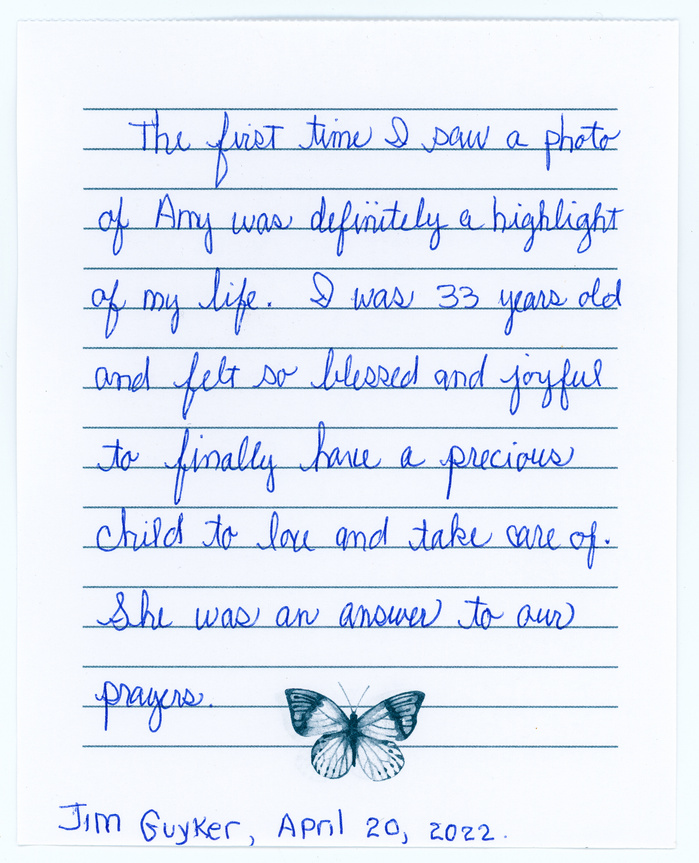 The first time I saw a photo
of Amy was definitely a highlight
of my life. I was 33 years old
and felt so blessed and joyful
to finally have a precious
child to love and take care of.
She was an answer to our
prayers.
Jim Guyker, April 20, 2022.